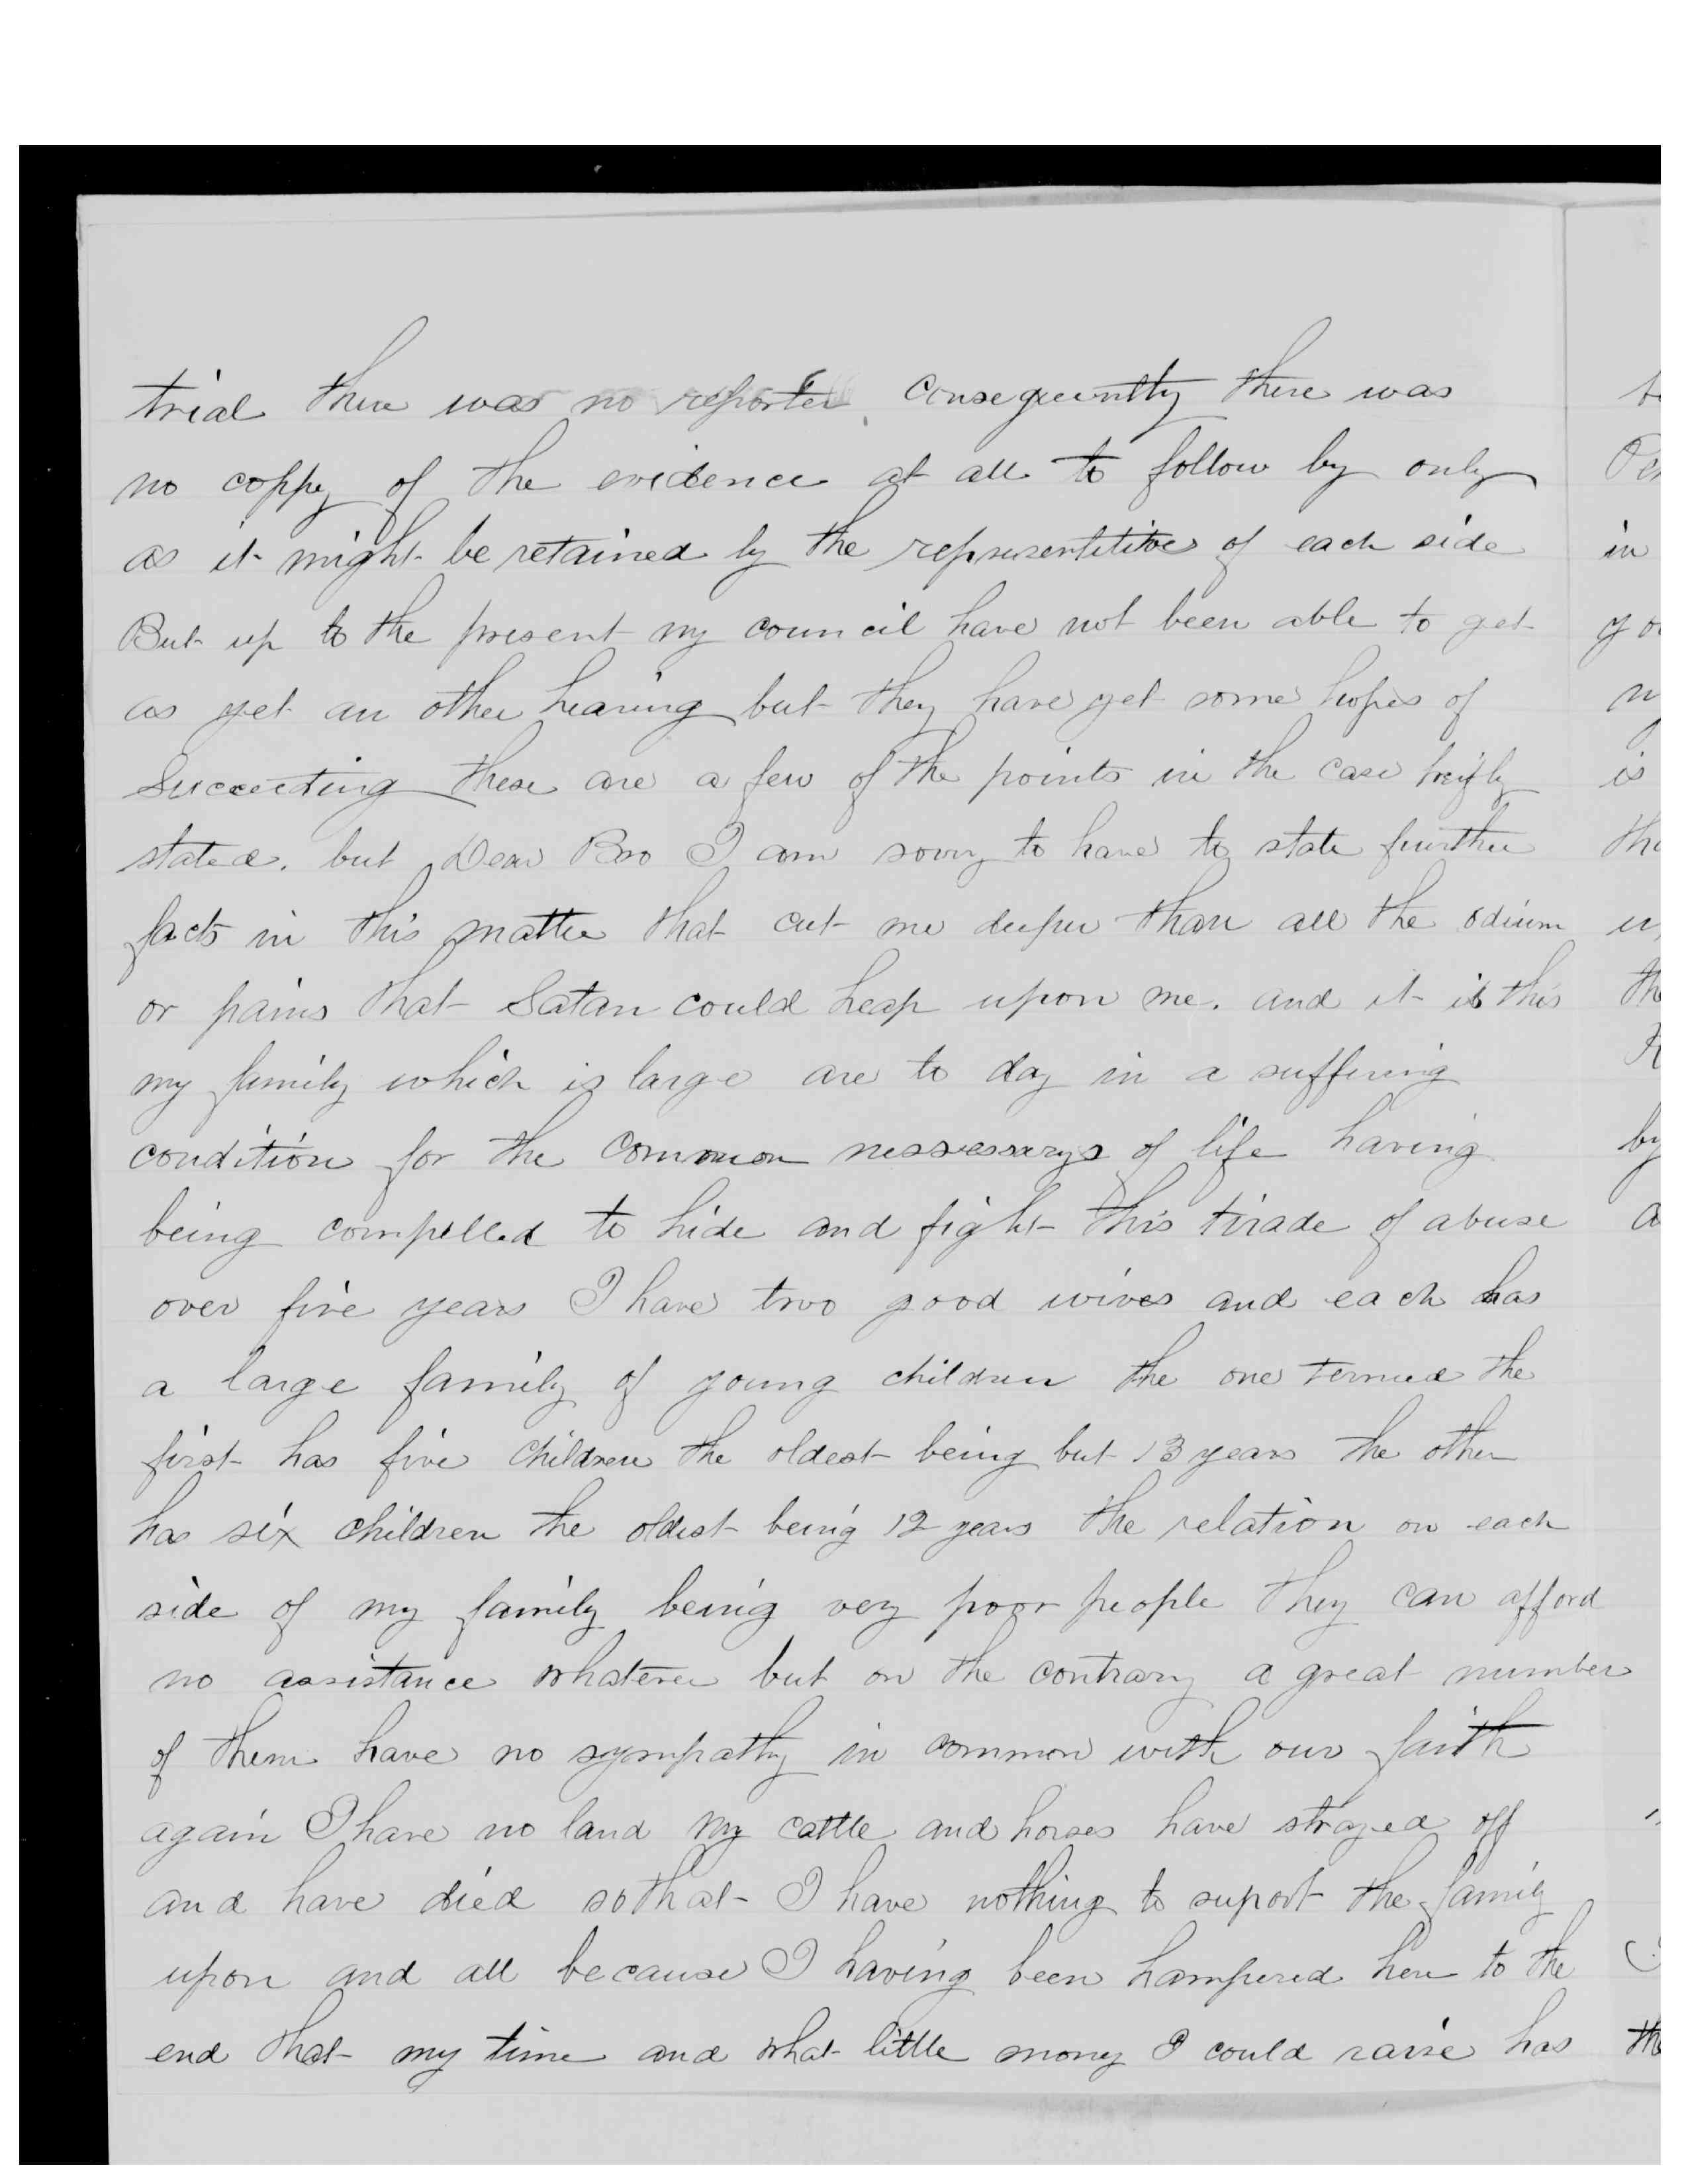 trial there was no reporter, consequently there was
no coppy of the evidence at all to follow by only
as it might be retained by the representitives of each side
But up to the present my council have not been able to get
as yet an other hearing but they have yet some hopes of
Succeeding these are a few of the points in the case breifly
stated. but Dear Bro I am sorry to have to state further
facts in this matter that cut me deeper than all the odium
or pains that Satan could heap upon me. and it is this
my family which is large are to day in a suffering
condition for the common nessessarys of life having
being compelled to hide and fight this tirade of abuse
over five years I have two good wives and each has
a large family of young children the one termed the
first has five children the oldest being but 13 years the other
has six children the oldest being 12 years the relation on each
side of my family being very poor people they can afford
no assistance whatever but on the contrary a great number
of them have no sympathy in common with our faith
again I have no land my cattle and horses have strayed off
and have died so that I have nothing to suport the family
upon and all because I having been hampered here to the
end that my time and what little mony I could raise has